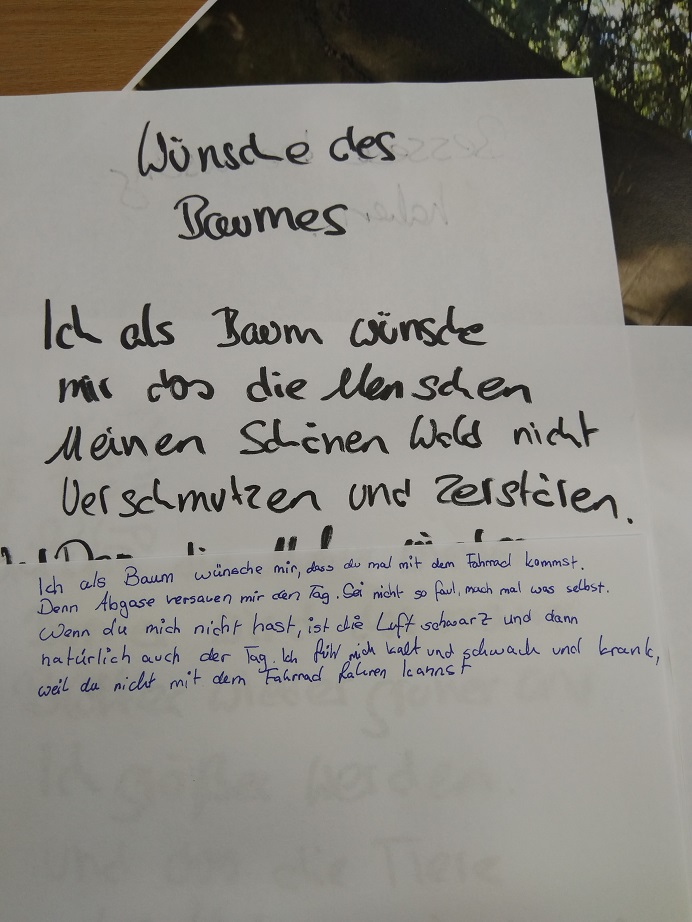 Wünsche des
Baumes
Ich als Baum wünsche
mir das die Menschen
Meinen Schönen Wald nicht
Verschmutzen und Zerstören.
Ich als Baum wünsche mir, dass du mal mit dem Fahrrad kommst.
Denn Abgase versauen mir den Tag. Sei nicht so faul, mach mal was selbst.
Wenn du mich nicht hast, ist die Luft schwarz und dann
natürlich auch der Tag. Ich fühl mich kalt und schwach und krank,
weil du nicht mit dem Fahrrad fahren kannst
größer werden.
und das die Tiere